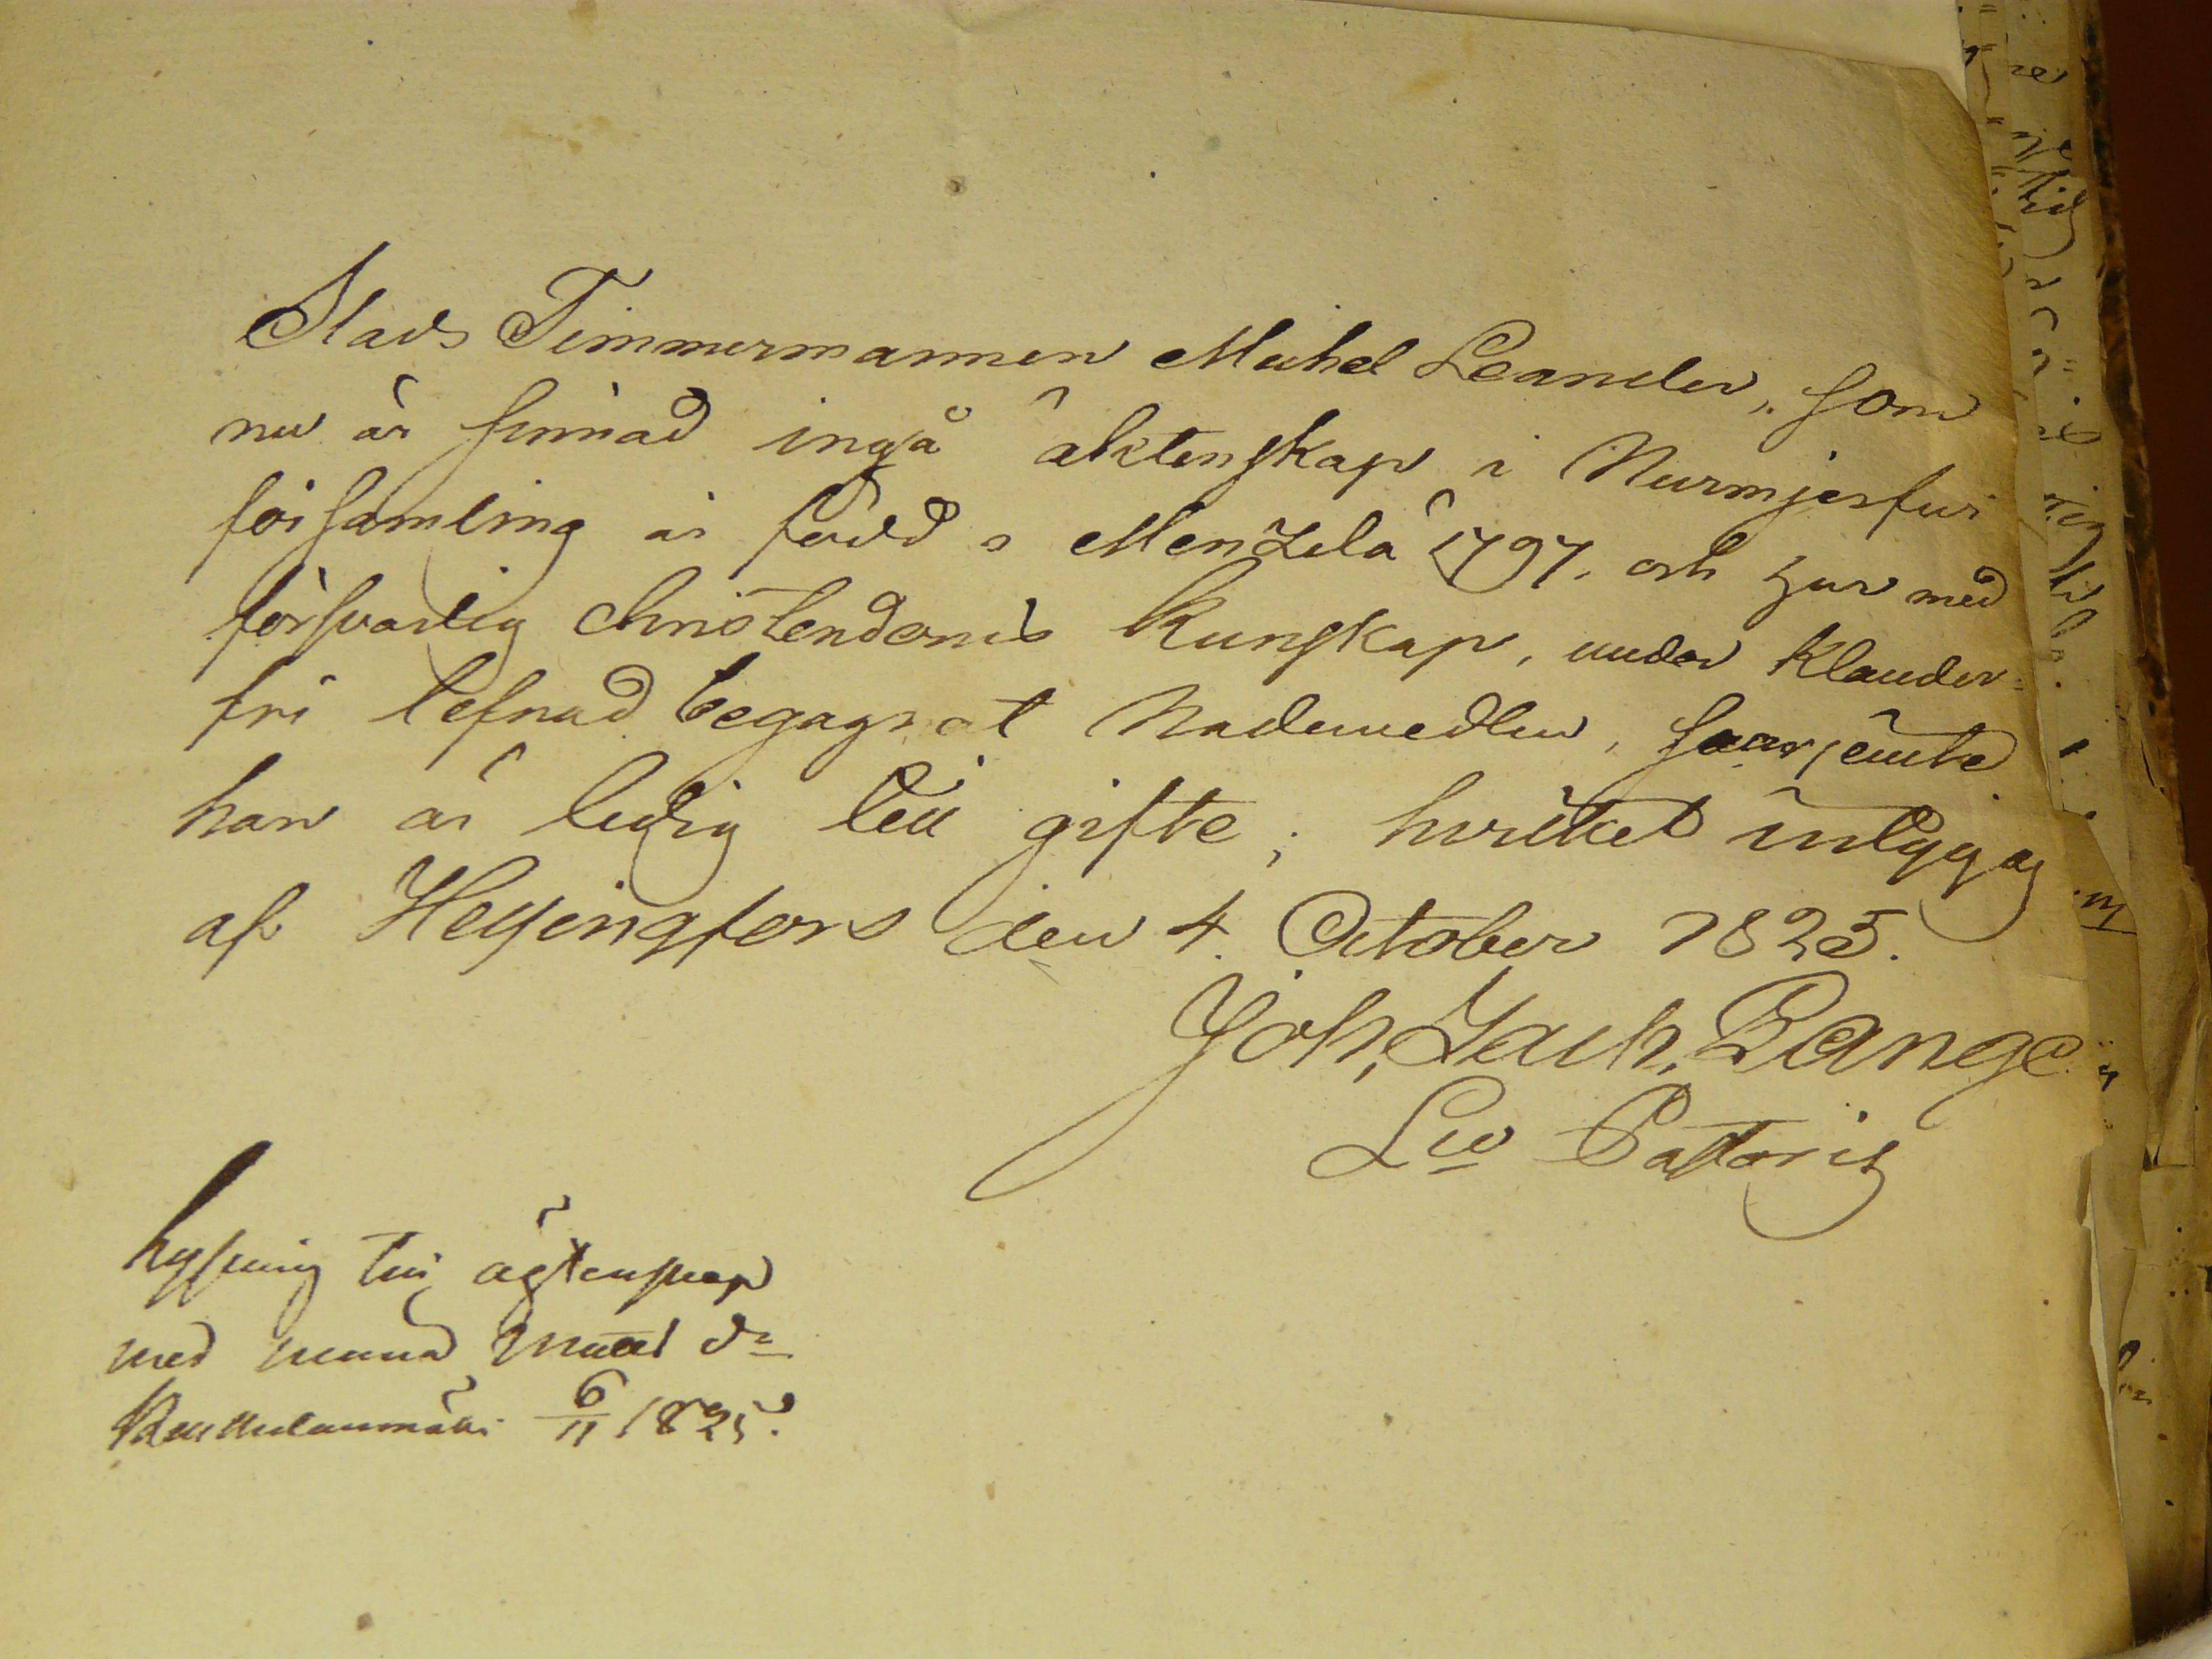 Stads Timmermannen Michel Leander, som
nu är sinnad ingå äktenskap i Nurmjerfvi
församling är född i Mentzelä 1797. och har med
försvarlig Christendoms Kunskap, under Klander=
fri lefnad begagnat Nademedlen, samt jemte
han är ledig till gifte; hvilket intygas
af Helsingfors den 4. October 1825.
Joh, Zach, Bange
Lw Pastoris
Lysning till ägtenskap
med
6/11 1825.